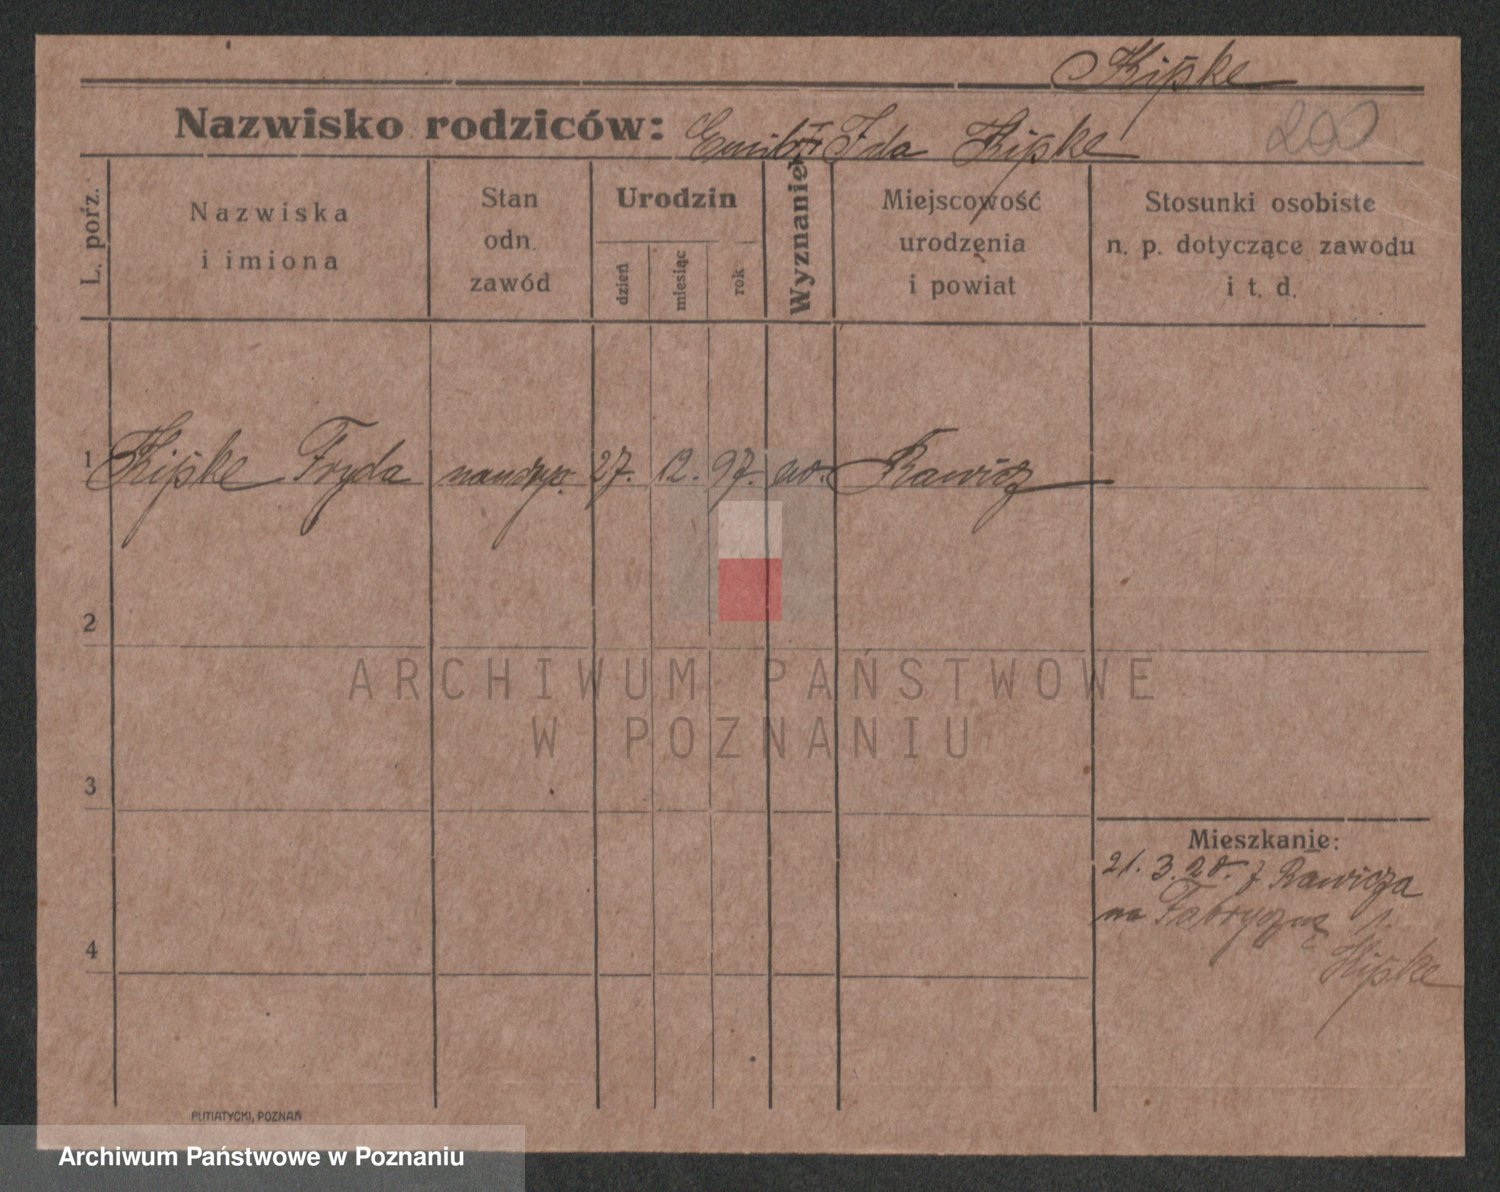 Kipke
Nazwisko rodziców: Emil i Ida Kipke
200
L. porz.
Nazwiska
i imiona
Stan
odn.
zawód
Urodzin
dzień
miesiąc
rok
Wyznanie
Miejscowość
urodzenia
i powiat
Stosunki osobiste
n. p. dotyczące zawodu
i t. d.
1 Kipke Fryda 27. 12. 97. ew. Rawicz
2
3
4
Mieszkanie:
21. 3. 28. z Rawicza
na Fabryczną
Kipke
PUTIATYCKI, POZNAŃ
ARCHIWUM PAŃSTWOWE
W POZNANIU
Archiwum Państwowe w Poznaniu